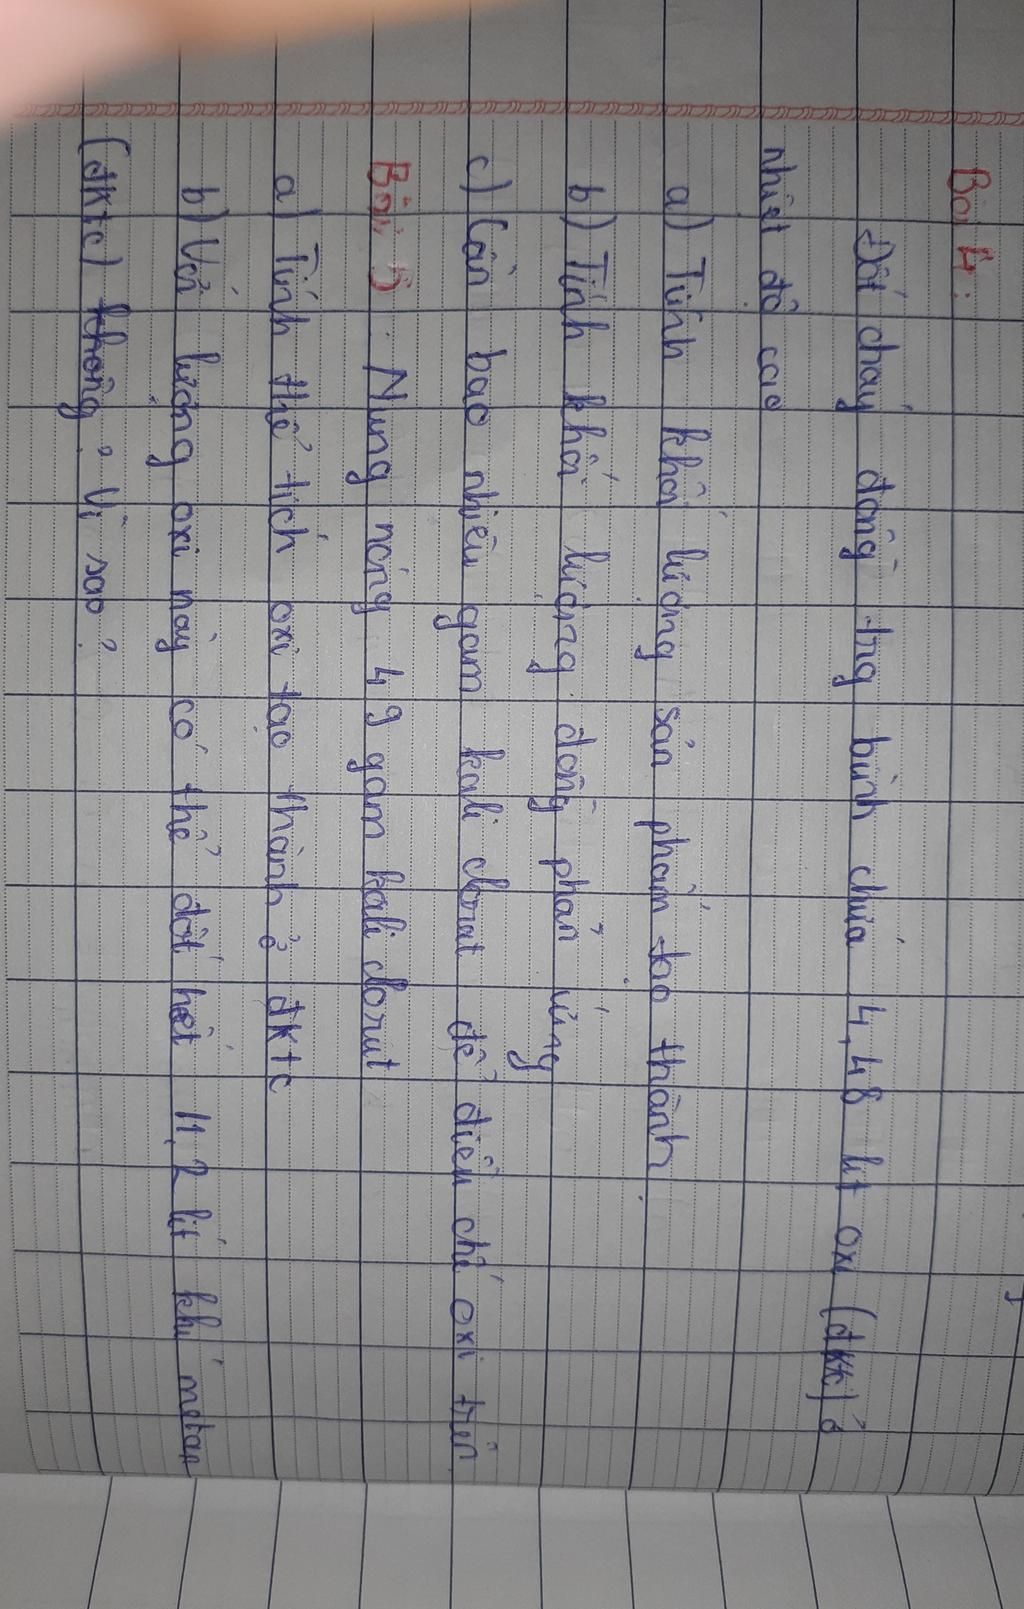 Bài 4:
Đốt cháy đồng trg bình chứa 4,48 lít oxi (đktc) ở
nhiệt độ cao
a) Tính khối lượng sản phẩm tạo thành.
b) Tính khối lượng đồng phản ứng
c) Cần bao nhiêu gam kali clorat để điều chế oxi trên
Bài 5: Nung nóng 49 gam kali clorat
a) Tính thể tích oxi tạo thành ở đktc
b) Với lượng oxi này có thể đốt hết 11,2 lít khí metan
(đktc) không? Vì sao?